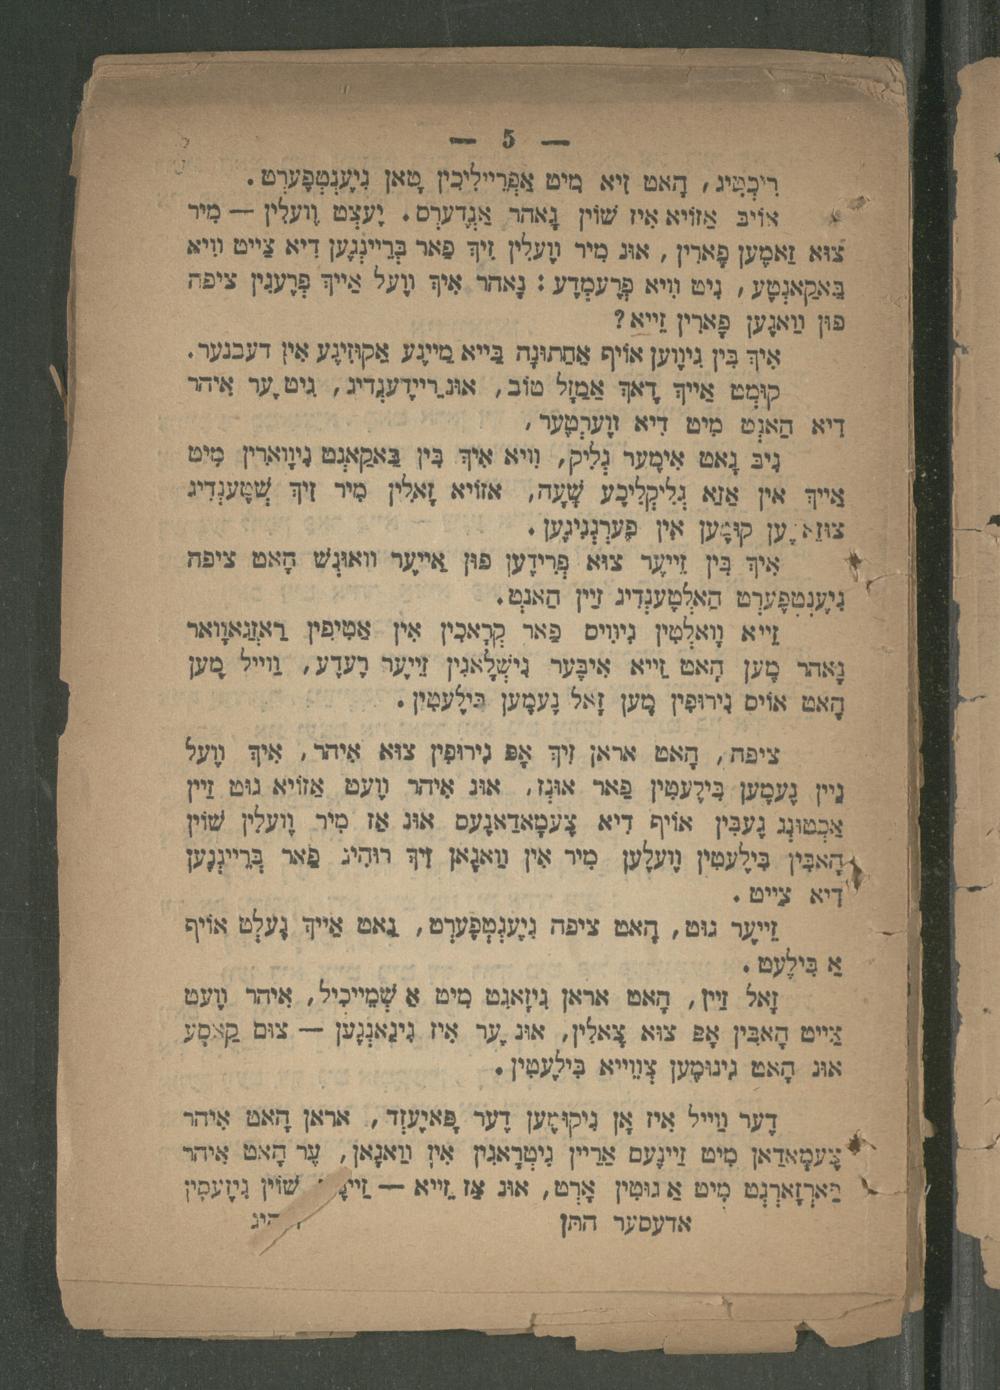 — 5 —
ריכְטִיג, הָאט זִיא מִיט אַפְרֵיילִיכִין טָאן גִיעֶנְטְפֶערְט.
אוֹיבּ אַזוֹיא אִיז שׁוֹין נָאהר אַנְדֶערְס. יֶעצְט וֶועלִין — מִיר
צוּא זַאמֶען פָארִין, אוּנ מִיר וֶועלִין זִיךְ פַאר בְּרֵיינְגֶען דִיא צַייט וִויא
בַּאקַאנְטֶע, נִיט וִויא פְרֶעמְדֶע: נָאהר אִיךְ וֶועל אַייךְ פְרֶעגִין ציפה
פוּן וַואנֶען פָארִין זֵייא?
אִיךְ בִּין גִיוֶוען אוֹיף אַחַתוּנָה בַּייא מַיינֶע אַקוּזִינֶע אִין דעבנער.
קוּמְט אַייךְ דָאךְ אַמַזָל טוֹב, אוּנ רֵיידֶענְדִיג, גִיט עֶר אִיהר
דִיא הַאנְט מִיט דִיא וֶוערְטֶער,
גִיבּ גָאט אִימֶער גְלִיק, וִויא אִיךְ בִּין בַּאקַאנְט גִיוָוארִין מִיט
אַייךְ אִין אַזַא גְלִיקְלִיכֶע שָׁעָה, אַזוֹיא זָאלִין מִיר זִיךְ שְׁטֶענְדִיג
קוּמֶען אִין פֶערְגְנִיגֶען.
אִיךְ בִּין זֵייעֶר צוּא פְרִידֶען פוּן אַייעֶר וואוּנְשׁ הָאט ציפה
גִיעֶנְטְפֶערְט הַאלְטֶענְדִיג זַיין הַאנְט.
זֵייא וָואלְטִין גִיוִויס פַאר קְרָאכִין אִין אַטִיפִין רַאזְגַאוָואר
נָאהר מֶען הָאט זֵייא אִיבֶּער גִישְׁלָאגִין זֵייעֶר רֶעדֶע, וַוייל מֶען
הָאט אוֹיס גִירוּפִין מֶען זָאל נֶעמֶען בִּילֶעטִין.
ציפה, הָאט אראן זִיךְ אָפּ גִירוּפִין צוּא אִיהר, אִיךְ וֶועל
גֵיין נֶעמֶען בִּילֶעטִין פַאר אוּנְז, אוּנ אִיהר וֶועט אַזוֹיא גוּט זַיין
אַכְטוּנְג גֶעבִּין אוֹיף דִיא צֶעמָאדַאנֶעס אוּנ אַז מִיר וֶועלִין שׁוֹין
הָאבִּין בִּילֶעטִין וֶועלֶען מִיר אִין וַואגָאן זִיךְ רוּהִיג פַאר בְּרֵיינְגֶען
דִיא צַייט.
זֵייעֶר גוּט, הָאט ציפה גִיעֶנְטְפֶערְט, נַאט אַייךְ גֶעלְט אוֹיף
אַ בִּילֶעט.
זָאל זַיין, הָאט אראן גִיזָאגְט מִיט אַ שְׁמֵייכִיל, אִיהר וֶועט
צַייט הָאבִּין אָפּ צוּא צָאלִין, אוּנ עֶר אִיז גִיגַאנְגֶען — צוּם קַאסֶע
אוּנ הָאט גִינוּמֶען צְוֵוייא בִּילֶעטִין.
דֶער וַוייל אִיז אָן גִיקוּמֶען דֶער פָּאיֶעזְד, אראן הָאט אִיהר
צֶעמָאדַאן מִיט זַיינֶעם אַרֵיין גִיטְרָאגִין אִין וַואגָאן, עֶר הָאט אִיהר
בַּארְזָארְגְט מִיט אַ גוּטִין אָרְט, אוּנ אַז זֵייא — שׁוֹין גִיזֶעסִין
אדעסער התן